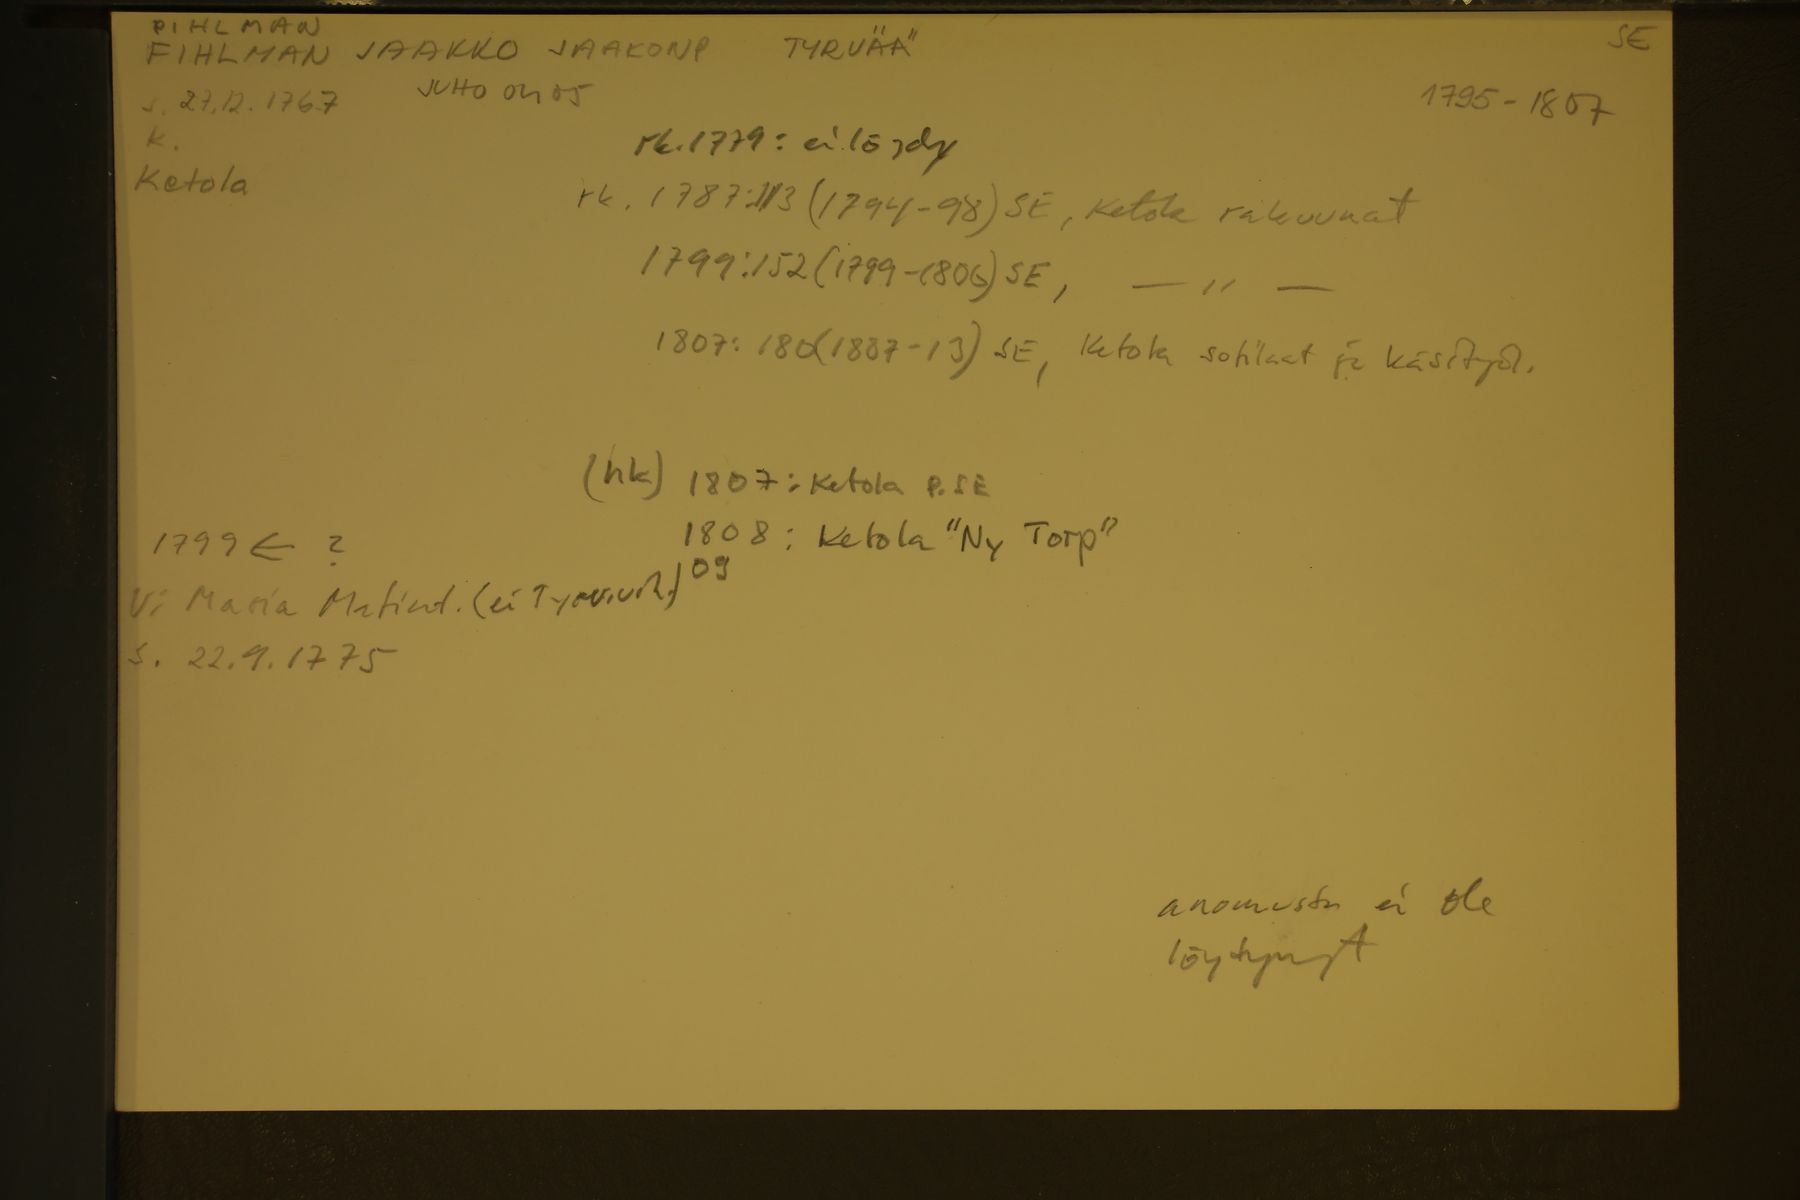 PIHLMAN
FIHLMAN JAAKKO JAAKONP TYRVÄÄ SE
s. 27.12.1767 JUHO 04 05 1795-1807
k. rk. 1779: ei löydy
Ketola rk. 1787:113 (1794-98) SE, Ketola rakuunat
1799:152 (1799-1806) SE, — " —
1807: 180 (1807-13) SE, Ketola sotilaat ja käsityöl.
(hk) 1807: Ketola P. SE
1808: Ketola "Ny Torp"
09
1799 ← ?
V: Maria Matint. (ei Tyrv.vih.)
s. 22.9.1775
anomusta ei ole
löytynyt